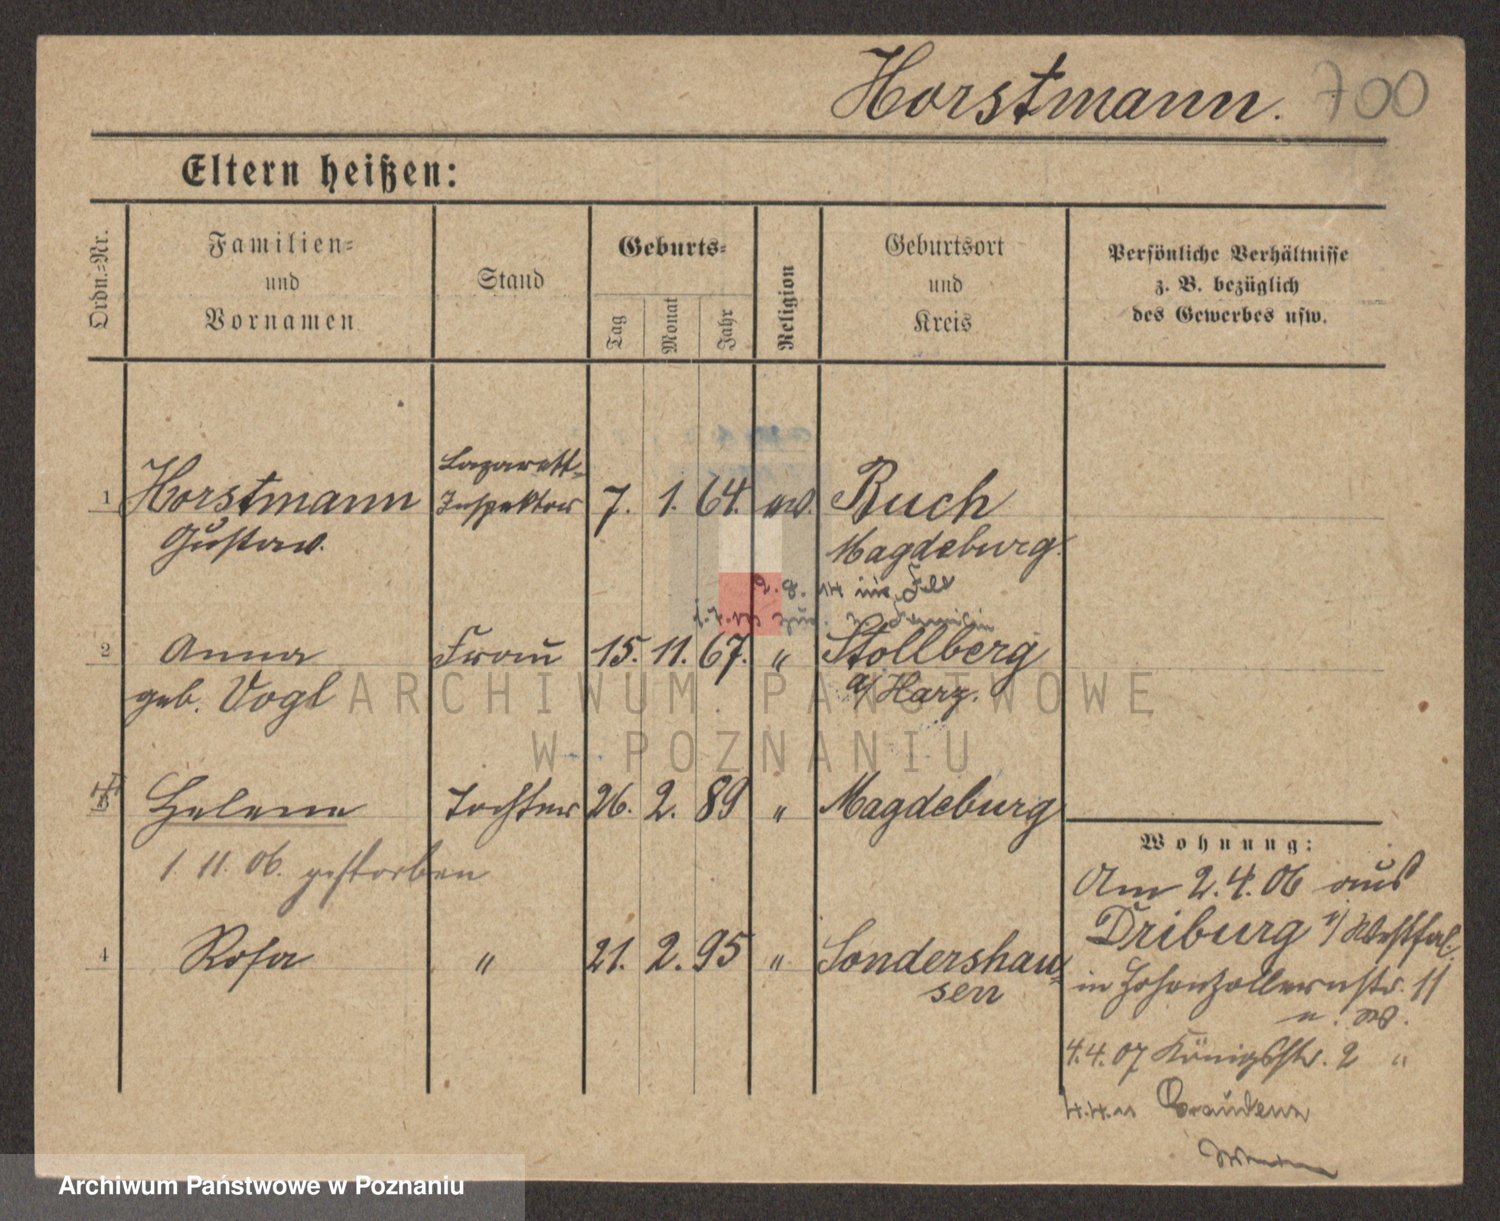 Horstmann. 700
Eltern heißen:
Ordn.=Nr.
Familien=
und
Vornamen
Stand
Geburts=
Tag
Monat
Jahr
Religion
Geburtsort
und
Kreis
Persönliche Verhältnisse
z. B. bezüglich
des Gewerbes usw.
Lazarett-
1 Horstmann Inspektor 7. 1. 64. ev. Buch
Gustav. Magdeburg.
2. 8. 14 ins Feld
2 Anna Frau 15. 11. 67. " Stollberg
geb. Vogl a/Harz.
ARCHIWUM PAŃSTWOWE
W POZNANIU
3 Helene Tochter 26. 2. 89 " Magdeburg
1. 11. 06. gestorben
4 Rosa " 21. 2. 95 " Sondershau-
sen
Wohnung:
Am 2.4.06 aus
Driburg i/Westfal.
in Hohenzollernstr. 11
4.4.07 Königsstr. 2 "
4.4.11 Graudenz
Archiwum Państwowe w Poznaniu